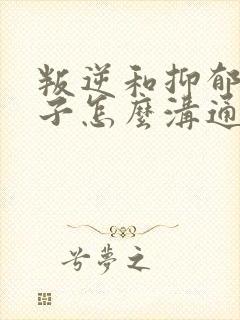 叛逆和抑郁
子怎麼溝通
兮夢之